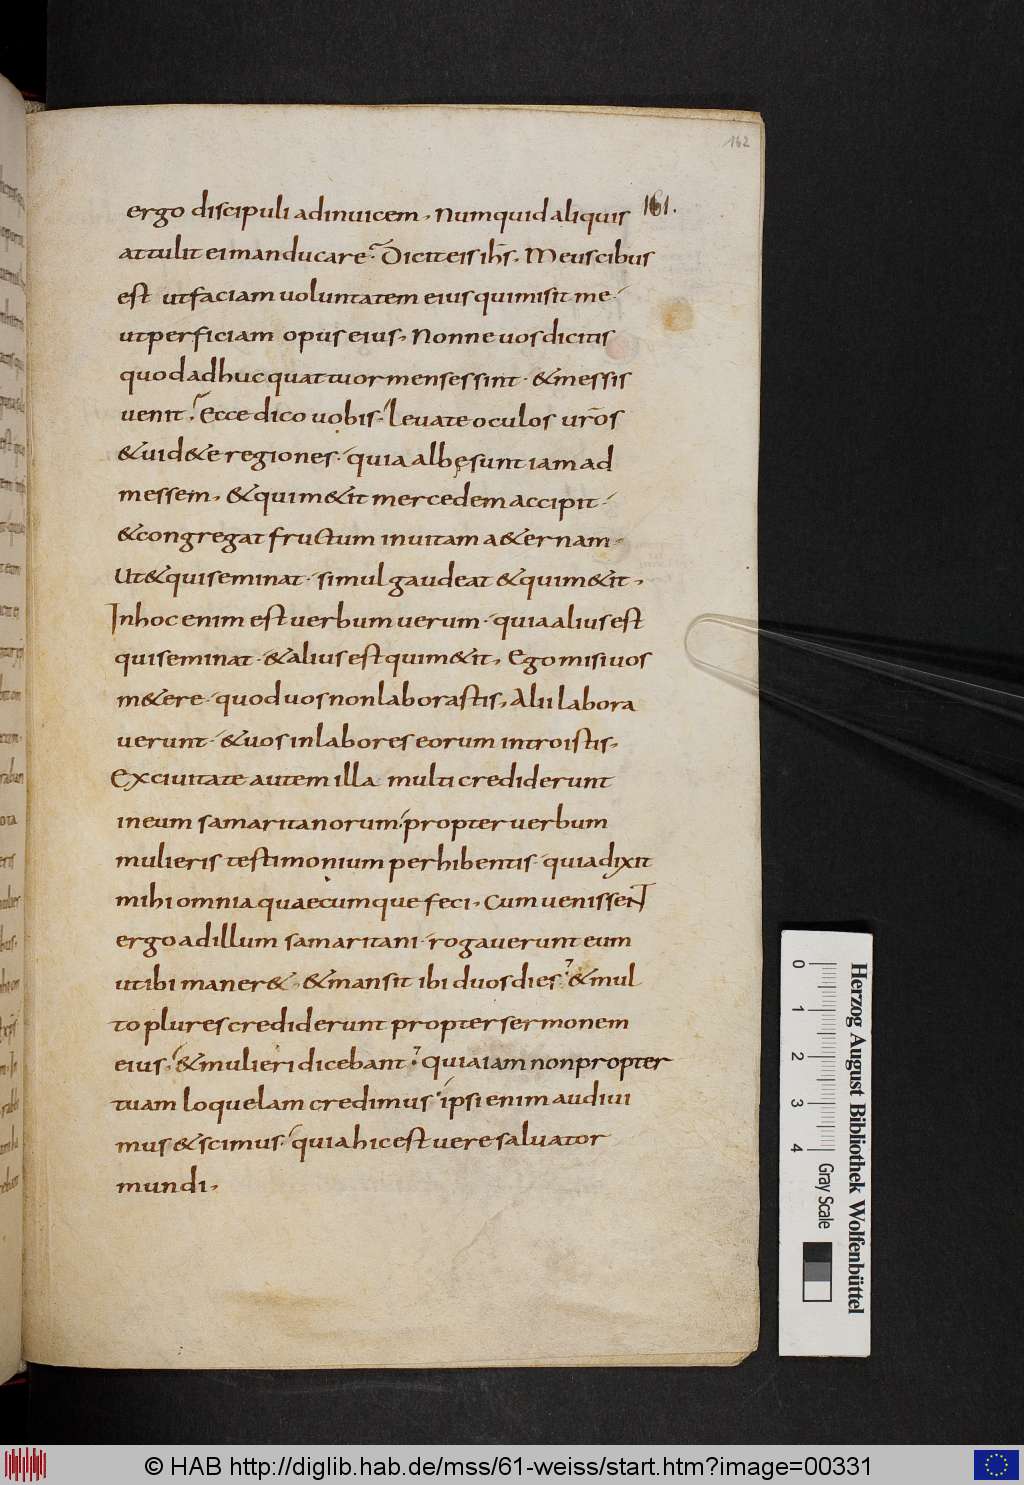 162
161.
ergo discipuli adinuicem, Numquid aliquis
attulit ei manducare? Dicit eis ihs̄. Meus cibus
est ut faciam uoluntatem eius qui misit me·
ut perficiam opus eius, Nonne uos dicitis
quod adhuc quattuor menses sint· & messis
uenit, Ecce dico uobis· leuate oculos ur̄os
& uid&e regiones· quia albę sunt iam ad
messem, & qui m&it mercedem accipit·
& congregat fructum in uitam a&ernam·
Ut & qui seminat· simul gaudeat & qui m&it,
In hoc enim est uerbum uerum· quia alius est
qui seminat· & alius est qui m&it, Ego misi uos
m&ere· quod uos non laborastis, Alii labora
uerunt· & uos in labores eorum introistis,
Ex ciuitate autem illa multi crediderunt
in eum samaritanorum· propter uerbum
mulieris testimonium perhibentis· quia dixit
mihi omnia quaecumque feci, Cum uenissent
ergo ad illum samaritani· rogauerunt eum
ut ibi maner&, & mansit ibi duos dies· & mul
to plures crediderunt propter sermonem
eius, & mulieri dicebant· quia iam non propter
tuam loquelam credimus· ipsi enim audiui
mus & scimus· quia hic est uere saluator
mundi,
0 1 2 3 4
Gray Scale
Herzog August Bibliothek Wolfenbüttel
© HAB http://diglib.hab.de/mss/61-weiss/start.htm?image=00331